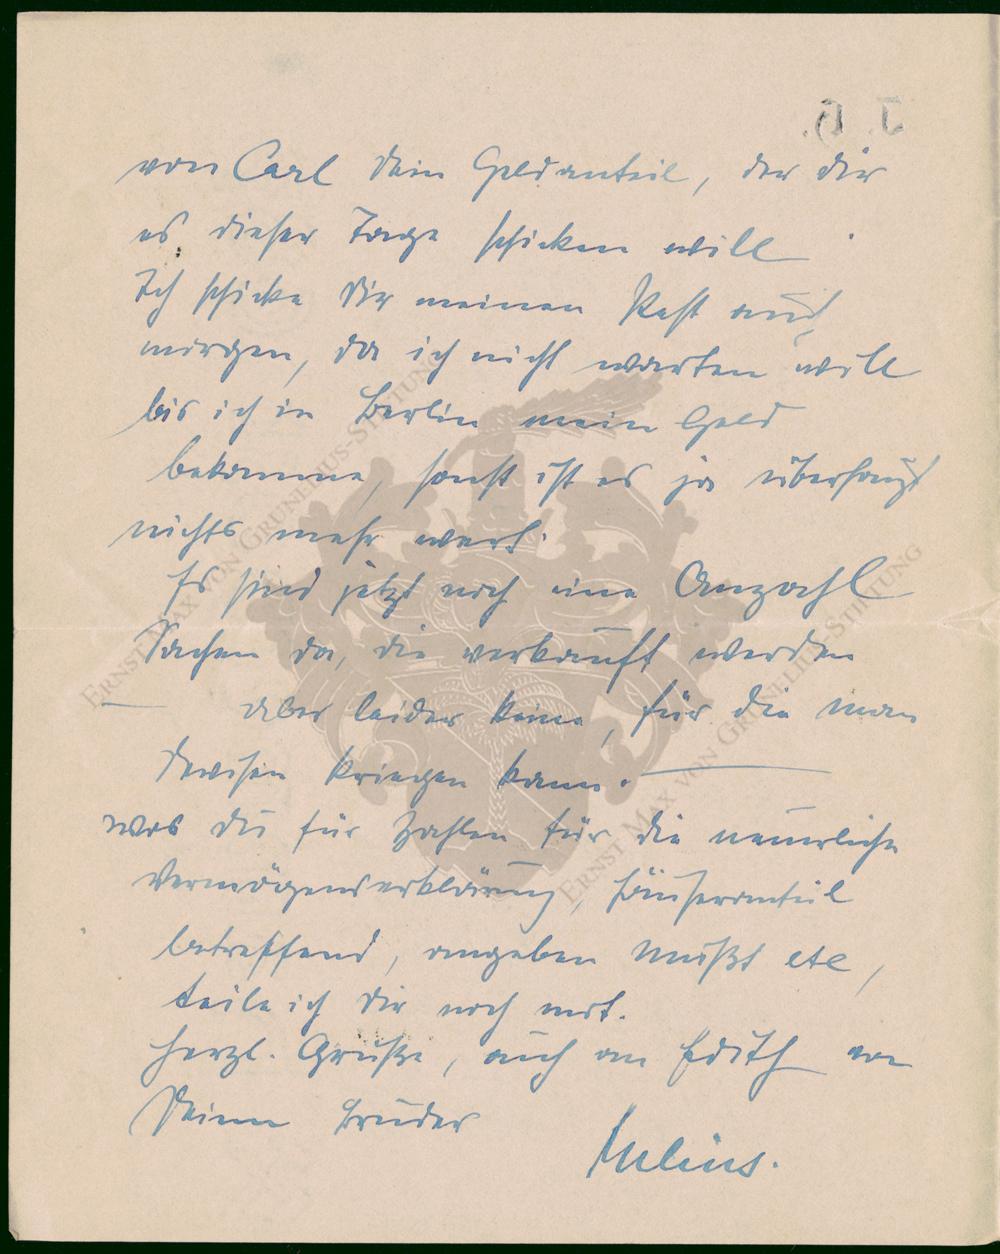 von Carl Dein Geldanteil, der dir
es dieser Tage schicken will
Ich schicke Dir meinen Rest auch
morgen, da ich nicht warten will
bis ich in Berlin mein Geld
bekomme, sonst ist es ja überhaupt
nichts mehr wert.
Es sind jetzt noch eine Anzahl
Sachen da, die verkauft werden
aber leider keine, für die man
Devisen kriegen kann.
was du für Zahlen für die neuerliche
Vermögenserklärung, Häuseranteil
betreffend, angeben mußt etc,
teile ich Dir noch mit.
Herzl. Grüße, auch an Edith von
Deinem Bruder
Julius.
J. G.
ERNST MAX VON GRUNELIUS-STIFTUNG
ERNST MAX VON GRUNELIUS-STIFTUNG